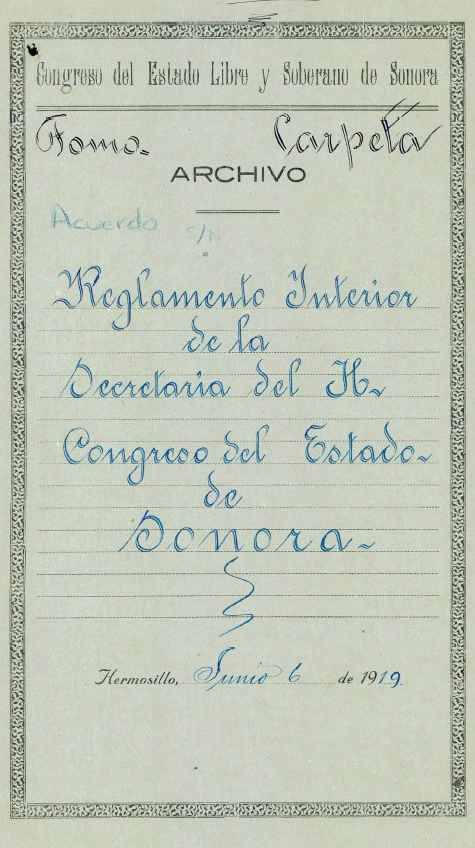 Congreso del Estado Libre y Soberano de Sonora
Tomo. Carpeta
ARCHIVO
Acuerdo s/n
Reglamento Interior
de la
Secretaria del H.
Congreso del Estado
de
Sonora.
Hermosillo, Junio 6 de 1919.